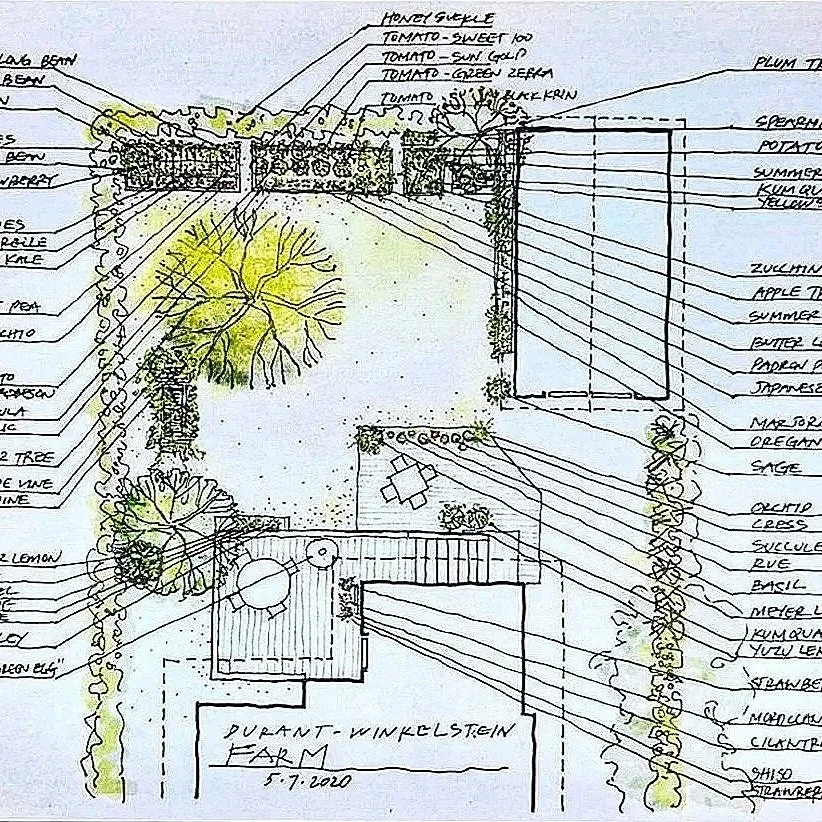 HONEY SUCKLE
TOMATO - SWEET 100
TOMATO - SUN GOLD
TOMATO - GREEN ZEBRA
TOMATO BLACK KRIM
LONG BEAN
BEAN
N
ES
BEAN
WBERRY
DES
KALE
T PEA
CHIO
TO
ULA
IC
R TREE
DE VINE
INE
R LEMON
EL
E
E
LEY
GREEN EGG"
PLUM TR
SPEARMI
POTATO
SUMMER
KUMQU
YELLOW S
ZUCCHIN
APPLE T
SUMMER
BUTTER L
PADRON P
JAPANESE
MARJOR
OREGAN
SAGE
ORCHID
CRESS
SUCCULE
RUE
BASIL
MEYER L
KUMQUA
YUZU LEM
STRAWBE
MOROCCAN
CILANTR
SHISO
STRAWBER
DURANT-WINKELSTEIN
FARM
5.7.2020